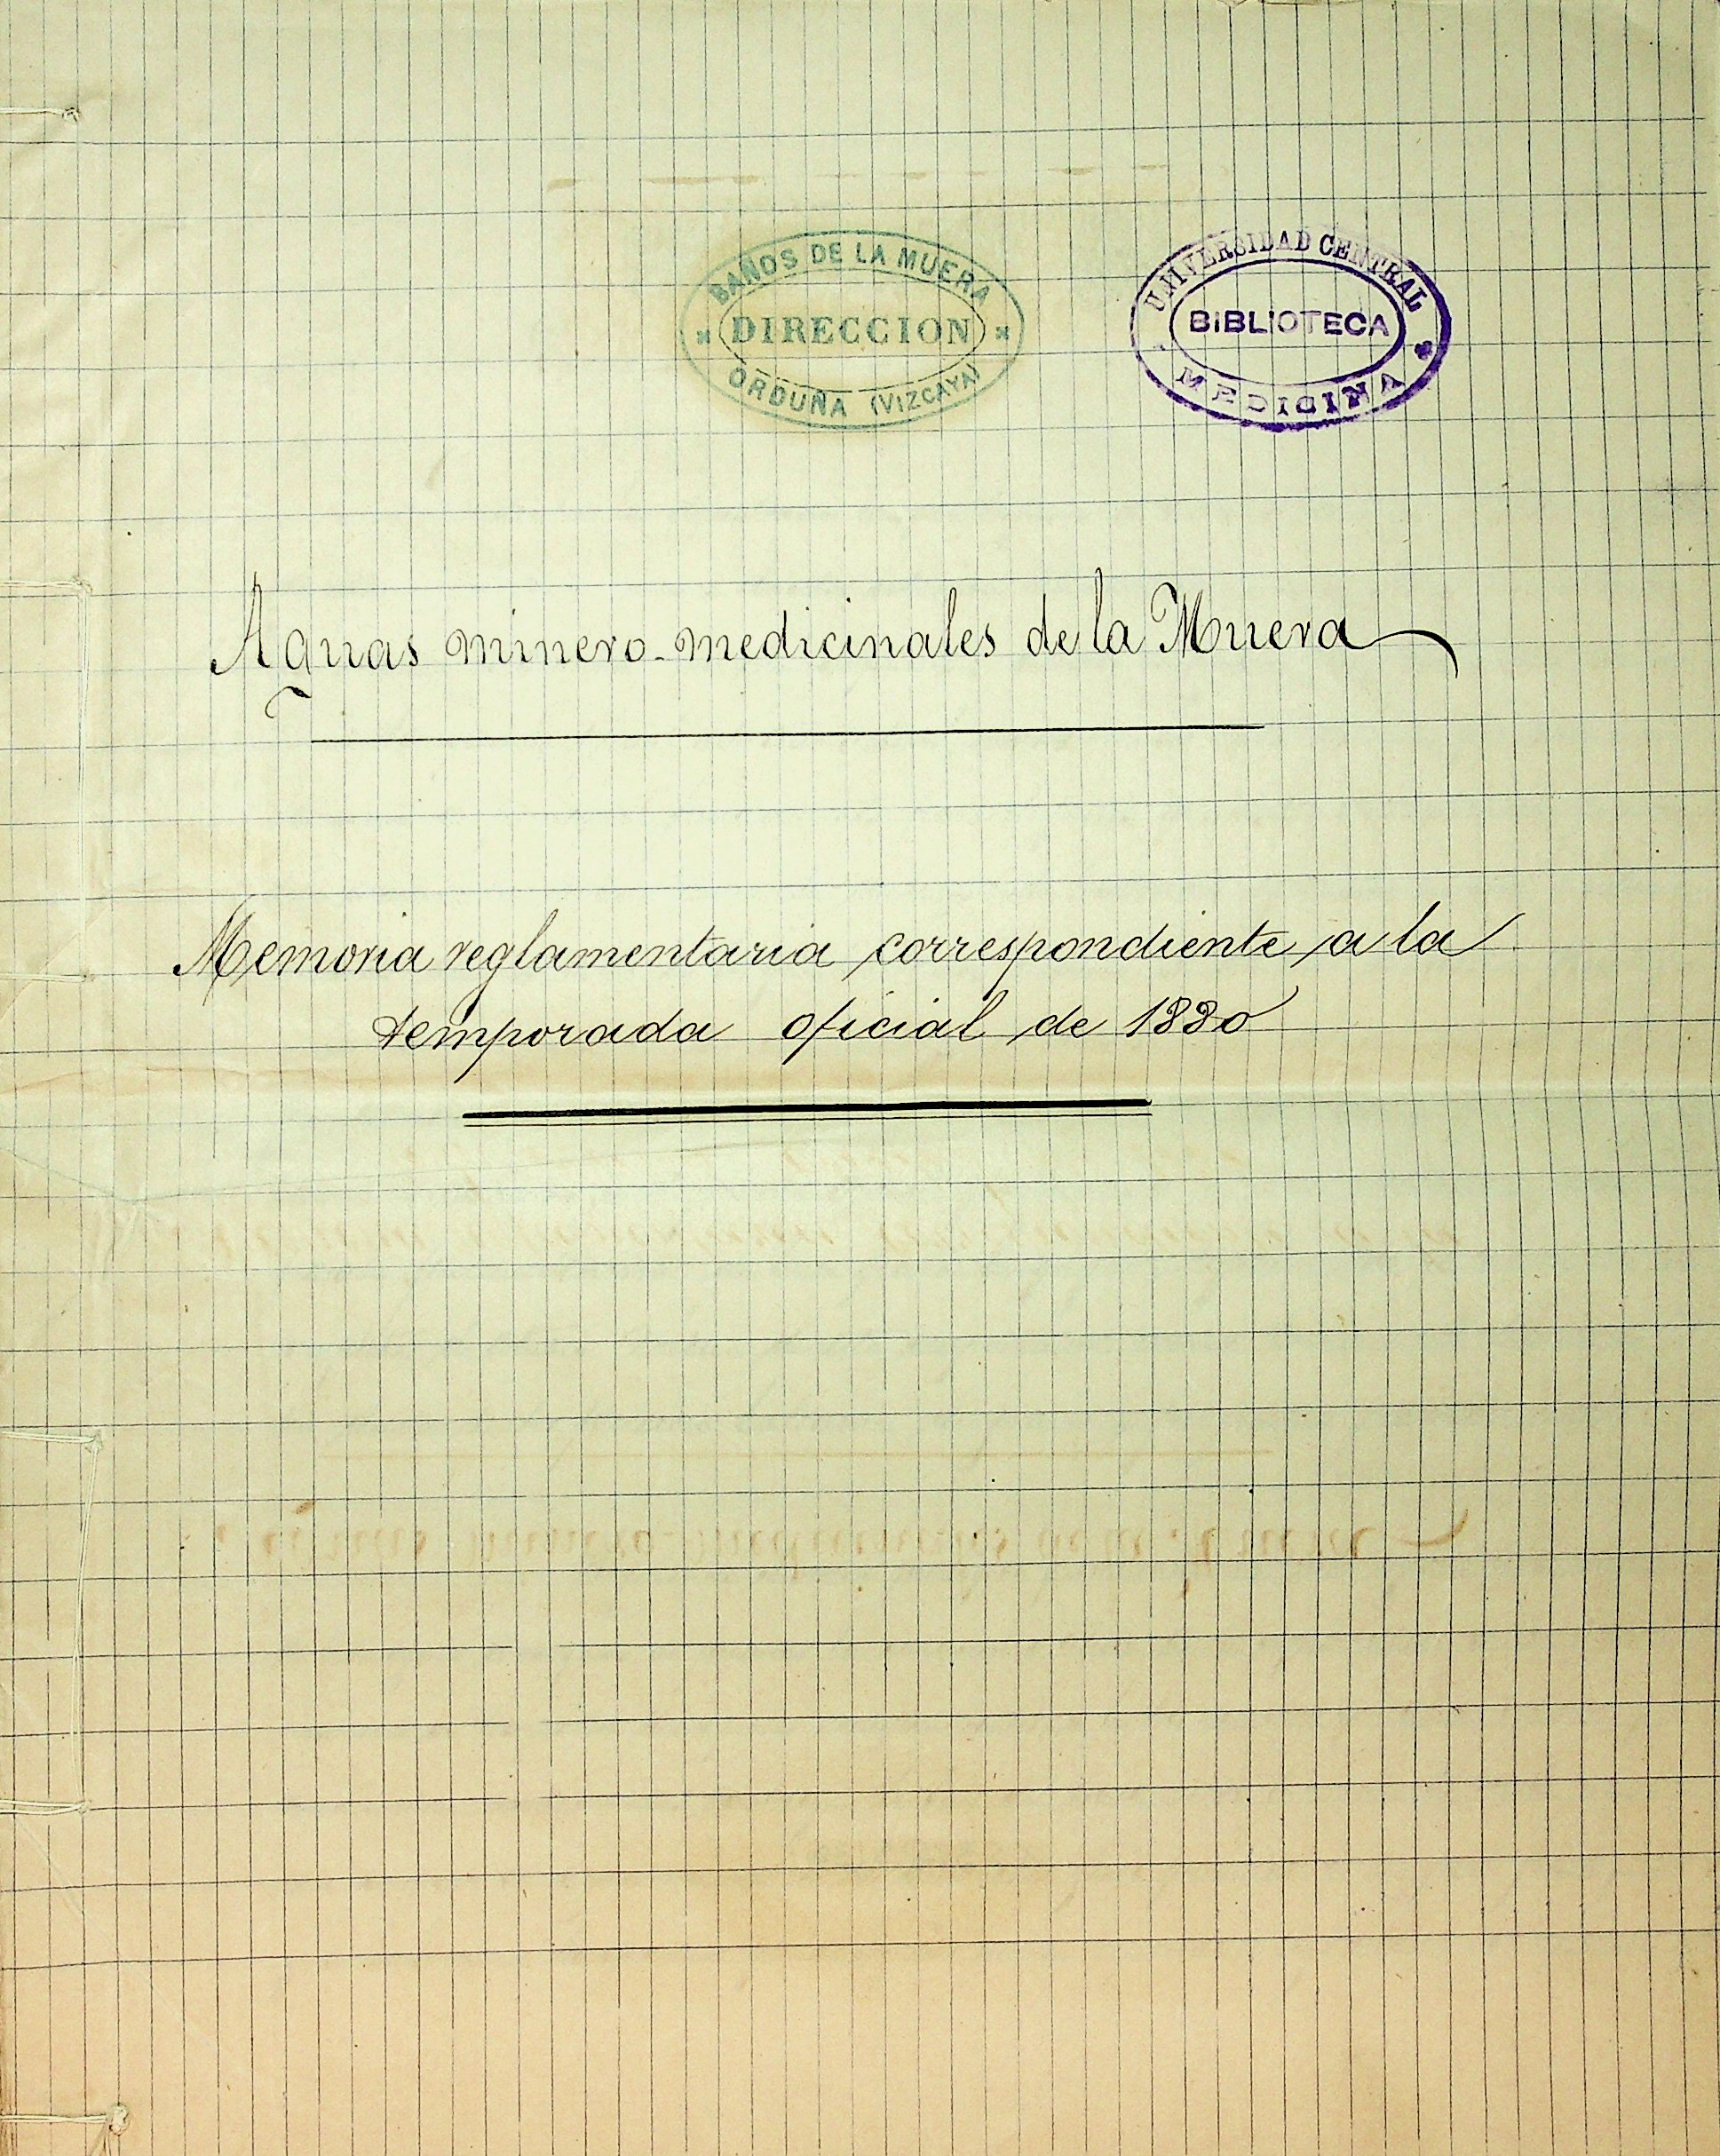 BAÑOS DE LA MUERA
DIRECCION
ORDUÑA (VIZCAYA)
UNIVERSIDAD CENTRAL
BIBLIOTECA
MEDICINA
Aguas minero-medicinales de la Muera
Memoria reglamentaria correspondiente a la
temporada oficial de 1880